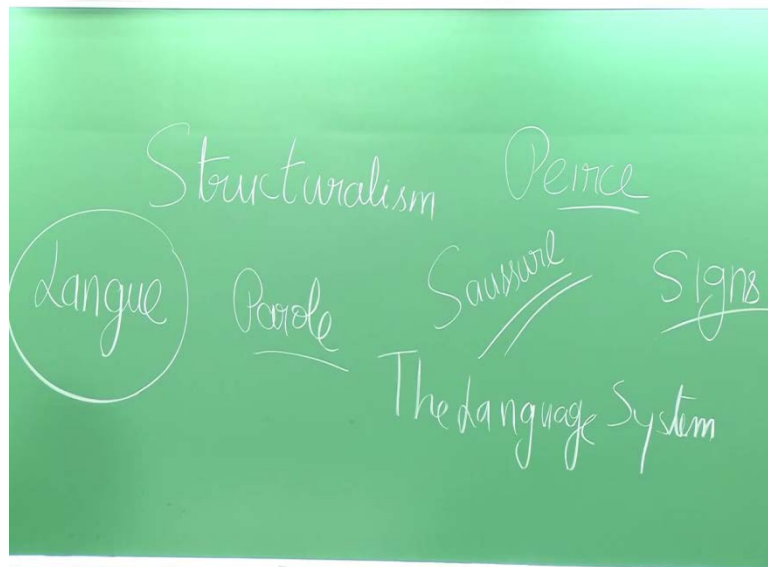 Structuralism Peirce
Langue Parole Saussure Signs
The Language System